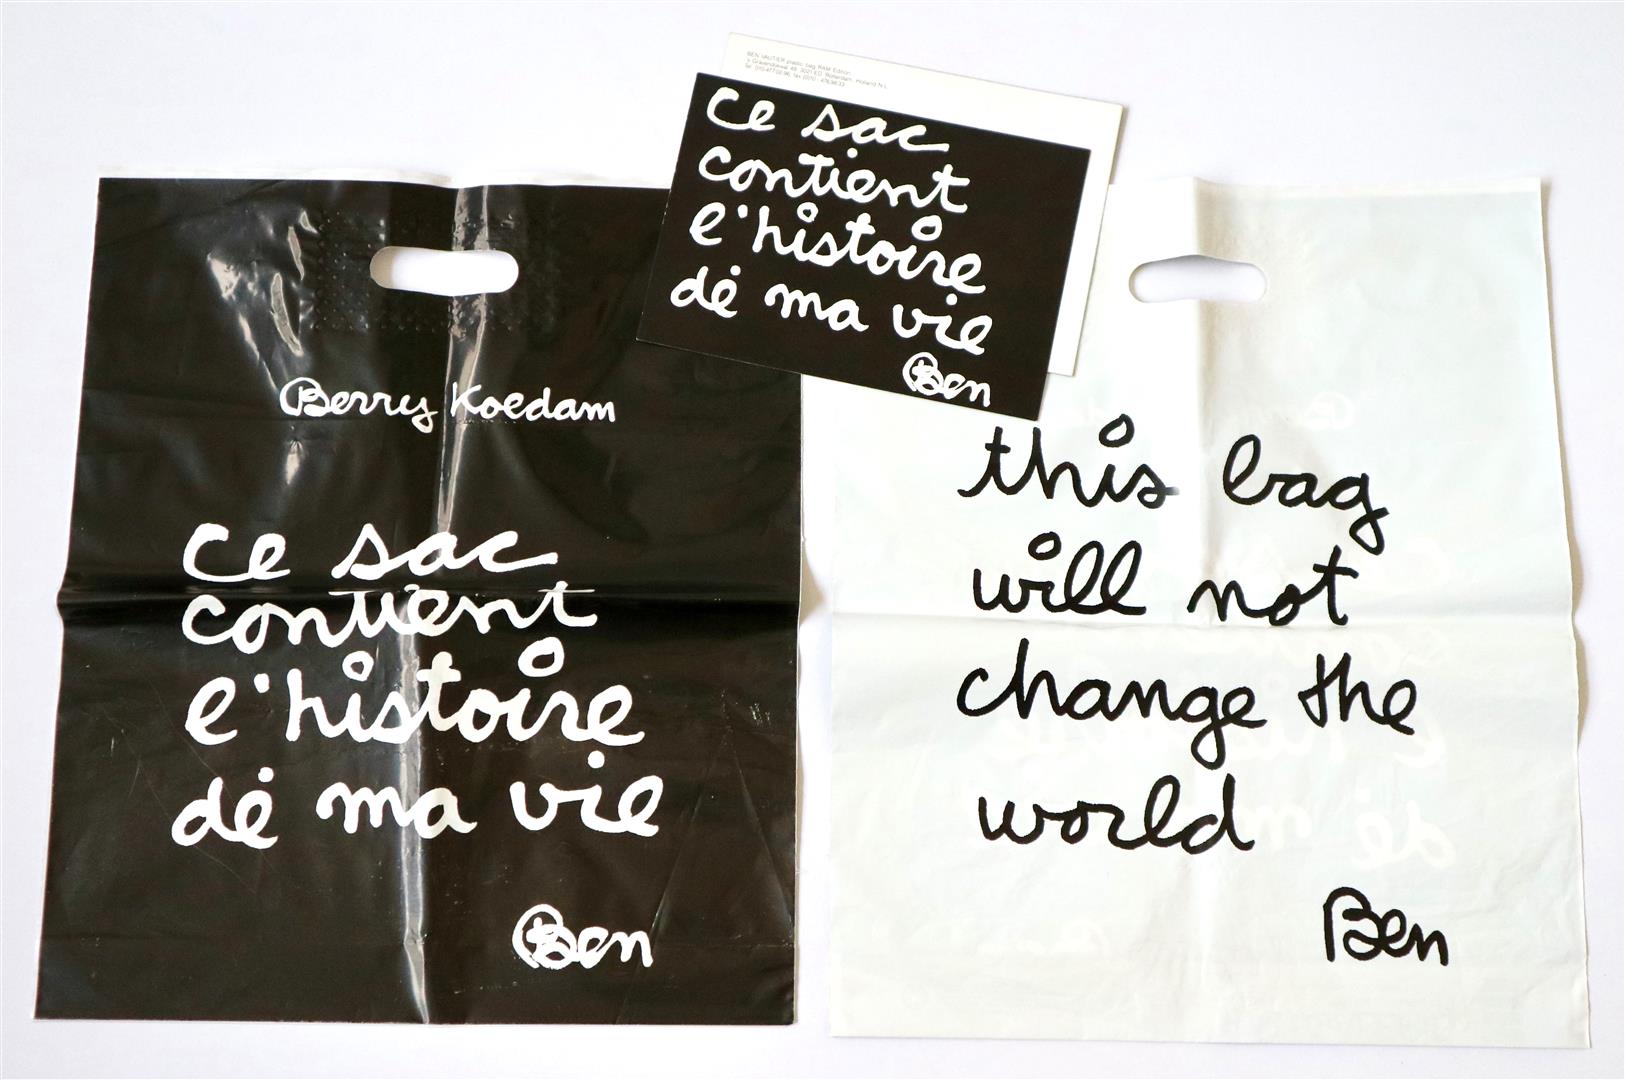 BEN VAUTIER plastic bag RAM Edition
Tel.
Rotterdam, Holland N.L.
ce sac
contient
l'histoire
dė ma vie
Ben
Berry Koedam
ce sac
contient
l'histoire
dė ma vie
Ben
this bag
will not
change the
world
Ben